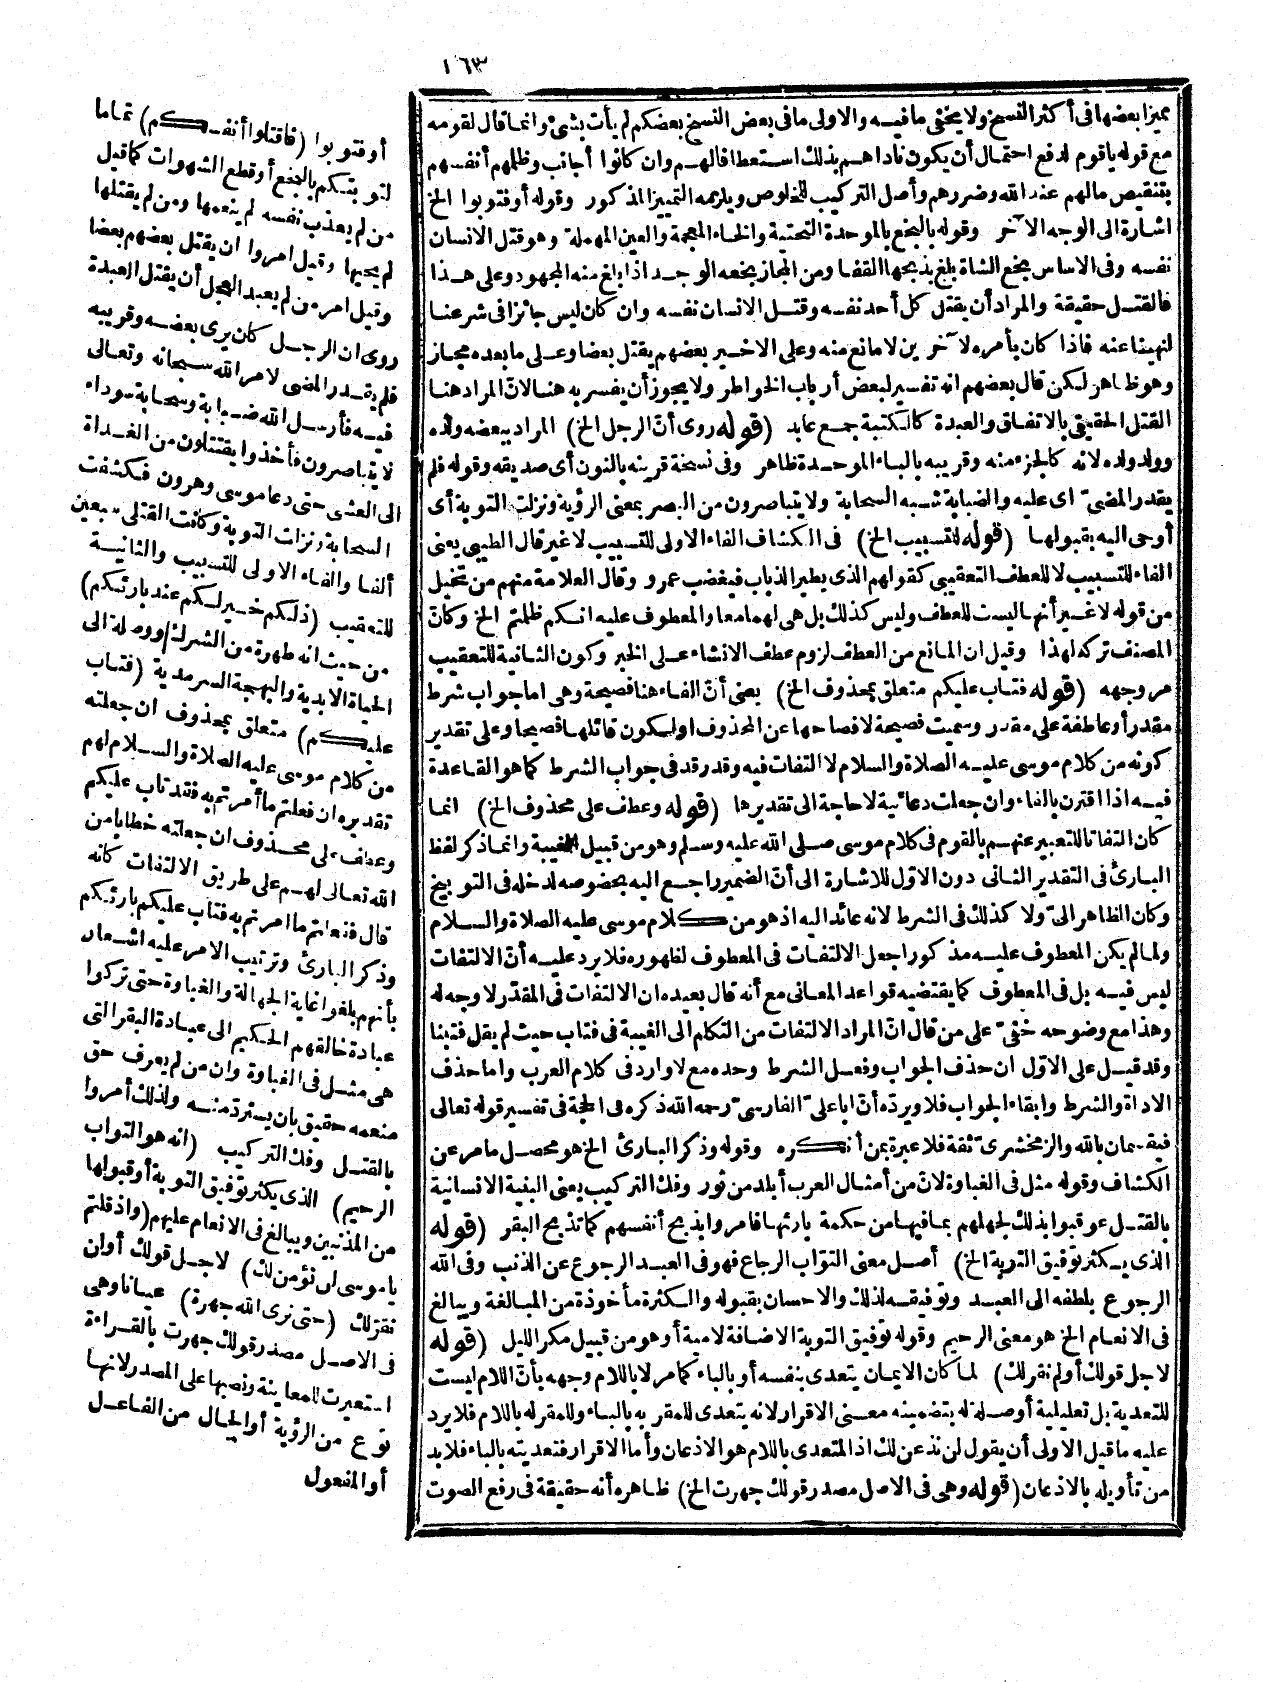 ١٦٣
مميزا بعضها في أكثر النسخ ولا يخفى ما فيه والاولى ما في بعض النسخ بعضكم لم يأت بشئ وانما قال لقومه
مع قوله ياقوم لدفع احتمال أن يكون ناداهم بذلك استعطافا لهم وان كانوا أجانب وظلمهم أنفسهم
بتنقيص مالهم عند الله وضررهم وأصل التركيب للخلوص ويلزمه التمييز المذكور وقوله أوفتوبوا الخ
اشارة الى الوجه الآخر وقوله بالبخع بالموحدة التحتية والخاء المعجمة والعين المهملة وهو قتل الانسان
نفسه وفى الاساس بخع الشاة بلغ بذبحها القفا ومن المجاز بخعه الوجد اذا بلغ منه المجهود وعلى هذا
فالقتل حقيقة والمراد أن يقتل كل أحد نفسه وقتل الانسان نفسه وان كان ليس جائزا في شرعنا
لنهينا عنه فاذا كان بأمره لآخرين لا مانع منه وعلى الاخير بعضهم يقتل بعضا وعلى ما بعده مجاز
وهو ظاهر لكن قال بعضهم انه تفسير لبعض أرباب الخواطر ولا يجوز أن يفسر به هنا لانّ المراد هنا
القتل الحقيقي بالاتفاق والعبدة كالكتبة جمع عابد (قوله روى أنّ الرجل الخ) المراد ببعضه ولده
وولد ولده لانه كالجزء منه وقريبه بالباء الموحدة ظاهر وفى نسخة قرينه بالنون أى صديقه وقوله فلم
يقدر المضىّ اى عليه والضبابة شبه السحابة ولا يتباصرون من البصر بمعنى الرؤية ونزلت التوبة أى
أوحى اليه بقبولها (قوله للتسبيب الخ) فى الكشاف الفاء الاولى للتسبيب لا غير قال الطيبي يعنى
الفاء للتسبيب لا للعطف التعقيبي كقولهم الذى يطير الذباب فيغضب عمرو وقال العلامة منهم من تخيل
من قوله لا غير أنها ليست للعطف وليس كذلك بل هى لهما معا والمعطوف عليه انكم ظلمتم الخ وكانّ
المصنف تركه لهذا وقيل ان المانع من العطف لزوم عطف الانشاء على الخبر وكون الثانية للتعقيب
مر وجهه (قوله فتاب عليكم متعلق بمحذوف الخ) يعنى أنّ الفاء هنا فصيحة وهى اما جواب شرط
مقدر أو عاطفة على مقدر وسميت فصيحة لافصاحها عن المحذوف اولكون قائلها فصيحا وعلى تقدير
كونه من كلام موسى عليه الصلاة والسلام لا التفات فيه وقدر قد فى جواب الشرط كما هو القاعدة
فيه اذا اقترن بالفاء وان جعلت دعائية لا حاجة الى تقديرها (قوله وعطف على محذوف الخ) انما
كان التفاتا للتعبير عنهم بالقوم فى كلام موسى صلى الله عليه وسلم وهو من قبيل الغيبة وانما ذكر لفظ
البارئ فى التقدير الثانى دون الاوّل للاشارة الى أنّ الضمير راجع اليه بخصوصه لدخله فى التوبيخ
وكان الظاهر الىّ ولا كذلك فى الشرط لانه عائد اليه اذ هو من كلام موسى عليه الصلاة والسلام
ولما لم يكن المعطوف عليه مذكورا جعل الالتفات فى المعطوف لظهوره فلا يرد عليه أنّ الالتفات
ليس فيه بل فى المعطوف كما يقتضيه قواعد المعانى مع أنه قال بعيده ان الالتفات فى المقدّر لا وجه له
وهذا مع وضوحه خفىّ على من قال انّ المراد الالتفات من التكلم الى الغيبة فى فتاب حيث لم يقل فتبنا
وقد قيل على الاوّل ان حذف الجواب وفعل الشرط وحده مع لا وارد فى كلام العرب واما حذف
الاداة والشرط وابقاء الجواب فلا ويردّه أنّ ابا علىّ الفارسىّ رحمه الله ذكره فى الحجة فى تفسير قوله تعالى
فيقسمان بالله والزمخشرىّ ثقة فلا عبرة بمن أنكره وقوله وذكر البارئ الخ هو محصل ما مر عن
الكشاف وقوله مثل فى الغباوة لانّ من أمثال العرب أبلد من ثور وفك التركيب يعنى البنية الانسانية
بالقتل عوقبوا بذلك لجهلهم بما فيها من حكمة بارئها فامروا بذبح أنفسهم كما تذبح البقر (قوله
الذى يكثر توفيق التوبة الخ) أصل معنى التوّاب الرجاع فهو فى العبد الرجوع عن الذنب وفى الله
الرجوع بلطفه الى العبد وتوفيقه لذلك والاحسان بقبوله والكثرة مأخوذة من المبالغة ويبالغ
فى الانعام الخ هو معنى الرحيم وقوله توفيق التوبة الاضافة لامية أو هو من قبيل مكر الليل (قوله
لاجل قولك أولم نقر لك) لما كان الايمان يتعدى بنفسه أو بالباء كما مر لا باللام وجهه بأنّ اللام ليست
للتعدية بل تعليلية أو صلة له بتضمينه معنى الاقرار لانه يتعدى للمقر به بالباء وللمقر له باللام فلا يرد
عليه ما قيل الاولى أن يقول لن نذعن لك اذ المتعدى باللام هو الاذعان وأما الاقرار فتعديته بالباء فلا بد
من تأويله بالاذعان (قوله وهى فى الاصل مصدر قولك جهرت الخ) ظاهره أنه حقيقة فى رفع الصوت
أوفتوبوا (فاقتلوا أنفسكم) تماما
لتوبتكم بالبخع أو قطع الشهوات كما قيل
من لم يعذب نفسه لم ينعمها ومن لم يقتلها
لم يحيها وقيل امروا ان يقتل بعضهم بعضا
وقيل امر من لم يعبد العجل أن يقتل العبدة
روى ان الرجل كان يرى بعضه وقريبه
فلم يقدر المضى لامر الله سبحانه وتعالى
فيه فأرسل الله ضبابة وسحابة سوداء
لا يتباصرون فأخذوا يقتتلون من الغداة
الى العشى حتى دعا موسى وهرون فكشفت
السحابة ونزلت التوبة وكانت القتلى سبعين
ألفا والفاء الاولى للتسبيب والثانية
للتعقيب (ذلكم خير لكم عند بارئكم)
من حيث انه طهرة من الشرك ووصلة الى
الحياة الابدية والبهجة السرمدية (فتاب
عليكم) متعلق بمحذوف ان جعلته
من كلام موسى عليه الصلاة والسلام لهم
تقديره ان فعلتم ما أمرتم به فقد تاب عليكم
وعطف على محذوف ان جعلته خطابا من
الله تعالى لهم على طريق الالتفات كانه
قال ففعلتم ما امرتم به فتاب عليكم بارئكم
وذكر البارئ وترتيب الامر عليه اشعار
بأنهم بلغوا غاية الجهالة والغباوة حتى تركوا
عبادة خالقهم الحكيم الى عبادة البقر التى
هى مثل فى الغباوة وان من لم يعرف حق
منعمه حقيق بان يستردّ منه ولذلك أمروا
بالقتل وفك التركيب (انه هو التواب
الرحيم) الذى يكثر توفيق التوبة أو قبولها
من المذنبين ويبالغ فى الانعام عليهم (واذ قلتم
ياموسى لن نؤمن لك) لاجل قولك أولن
نقر لك (حتى نرى الله جهرة) عيانا وهى
فى الاصل مصدر قولك جهرت بالقراءة
استعيرت للمعاينة ونصبها على المصدر لانها
نوع من الرؤية أو الحال من الفاعل
أو المفعول